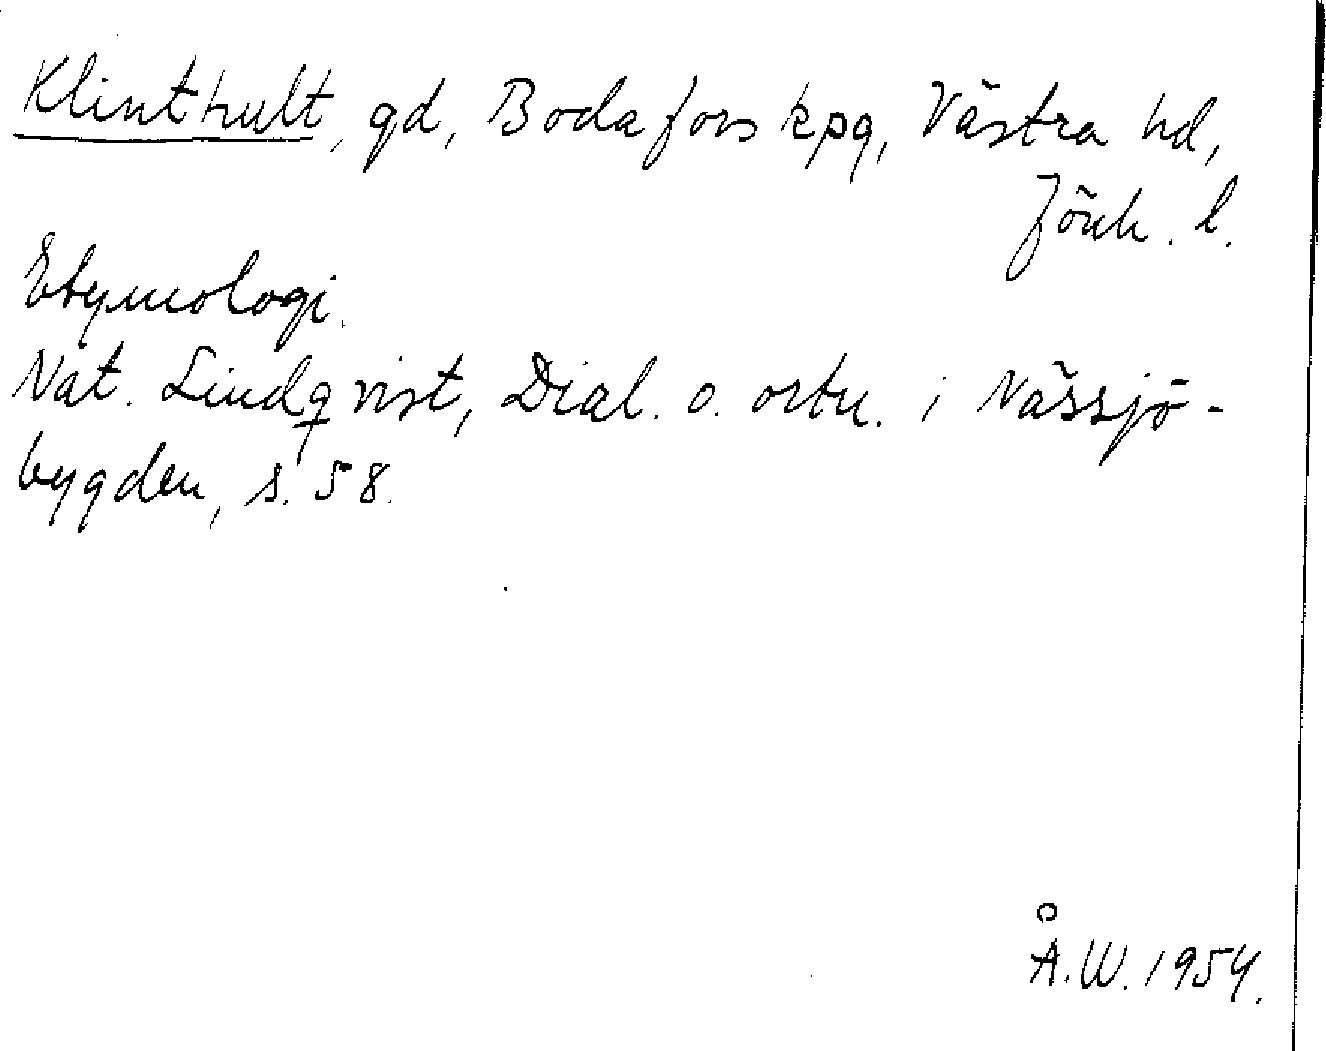 Klinthult, gd, Bodafors kpg, Västra hd,
Jönk. l.
Etymologi.
Nat. Lindqvist, Dial. o. ortn. i Nässjö-
bygden, s. 58.
Å.W. 1954.